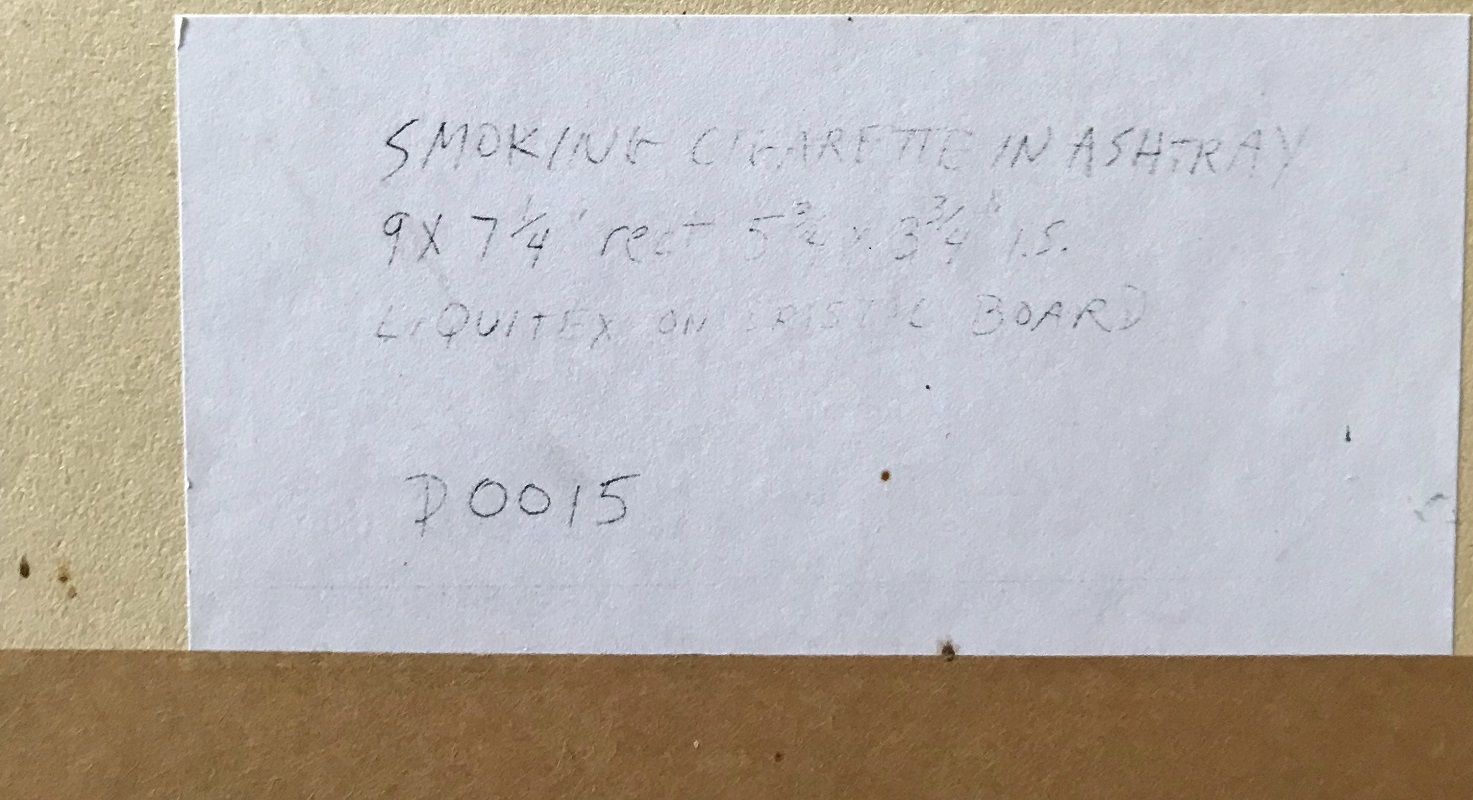 SMOKING CIGARETTE IN ASHTRAY
9 X 7 1/4" rect 5 3/4 x 3 3/4" I.S.
LIQUITEX ON BRISTOL BOARD
D0015